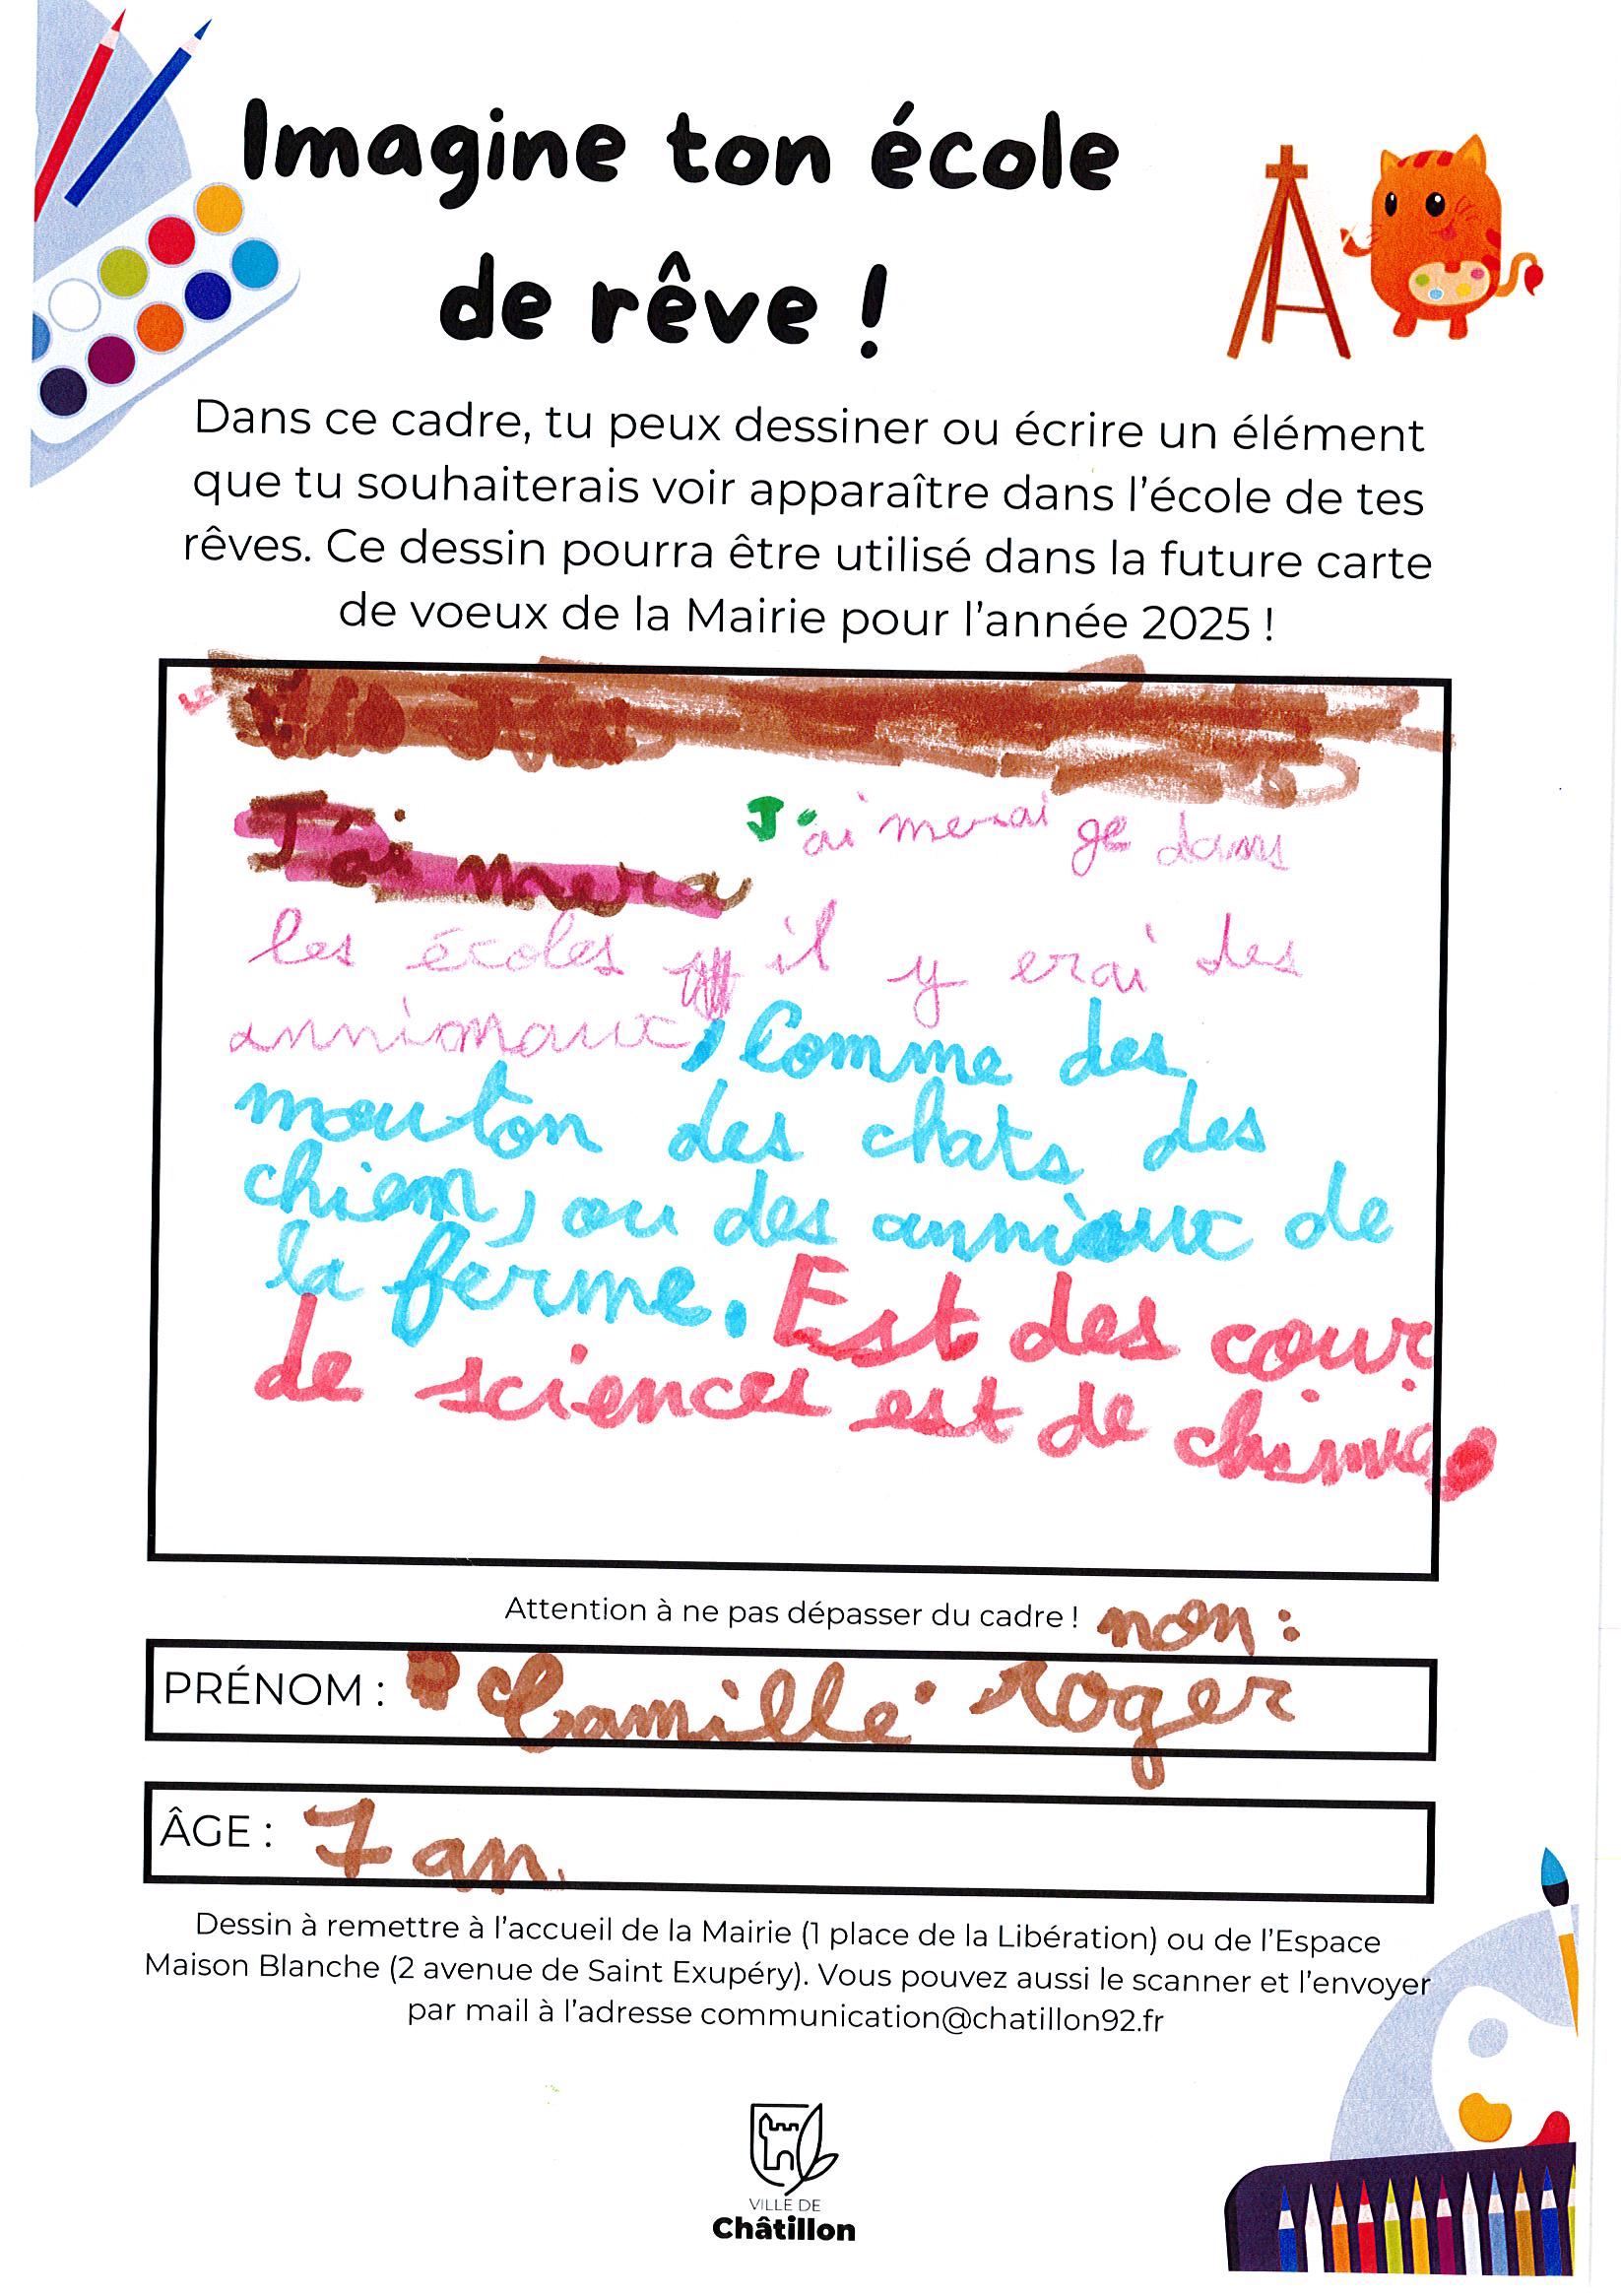 Imagine ton école
de rêve !
Dans ce cadre, tu peux dessiner ou écrire un élément
que tu souhaiterais voir apparaître dans l'école de tes
rêves. Ce dessin pourra être utilisé dans la future carte
de voeux de la Mairie pour l'année 2025 !
J'ai mera
J'ai merai ge dans
les écoles il y erai des
annimaux, Comme des
mouton des chats des
chien, ou des anniaux de
la ferme. Est des cour
de sciences est de chimie.
Attention à ne pas dépasser du cadre ! non :
PRÉNOM : Camille. roger
ÂGE : 7 an.
Dessin à remettre à l'accueil de la Mairie (1 place de la Libération) ou de l'Espace
Maison Blanche (2 avenue de Saint Exupéry). Vous pouvez aussi le scanner et l'envoyer
par mail à l'adresse communication@chatillon92.fr
VILLE DE
Châtillon